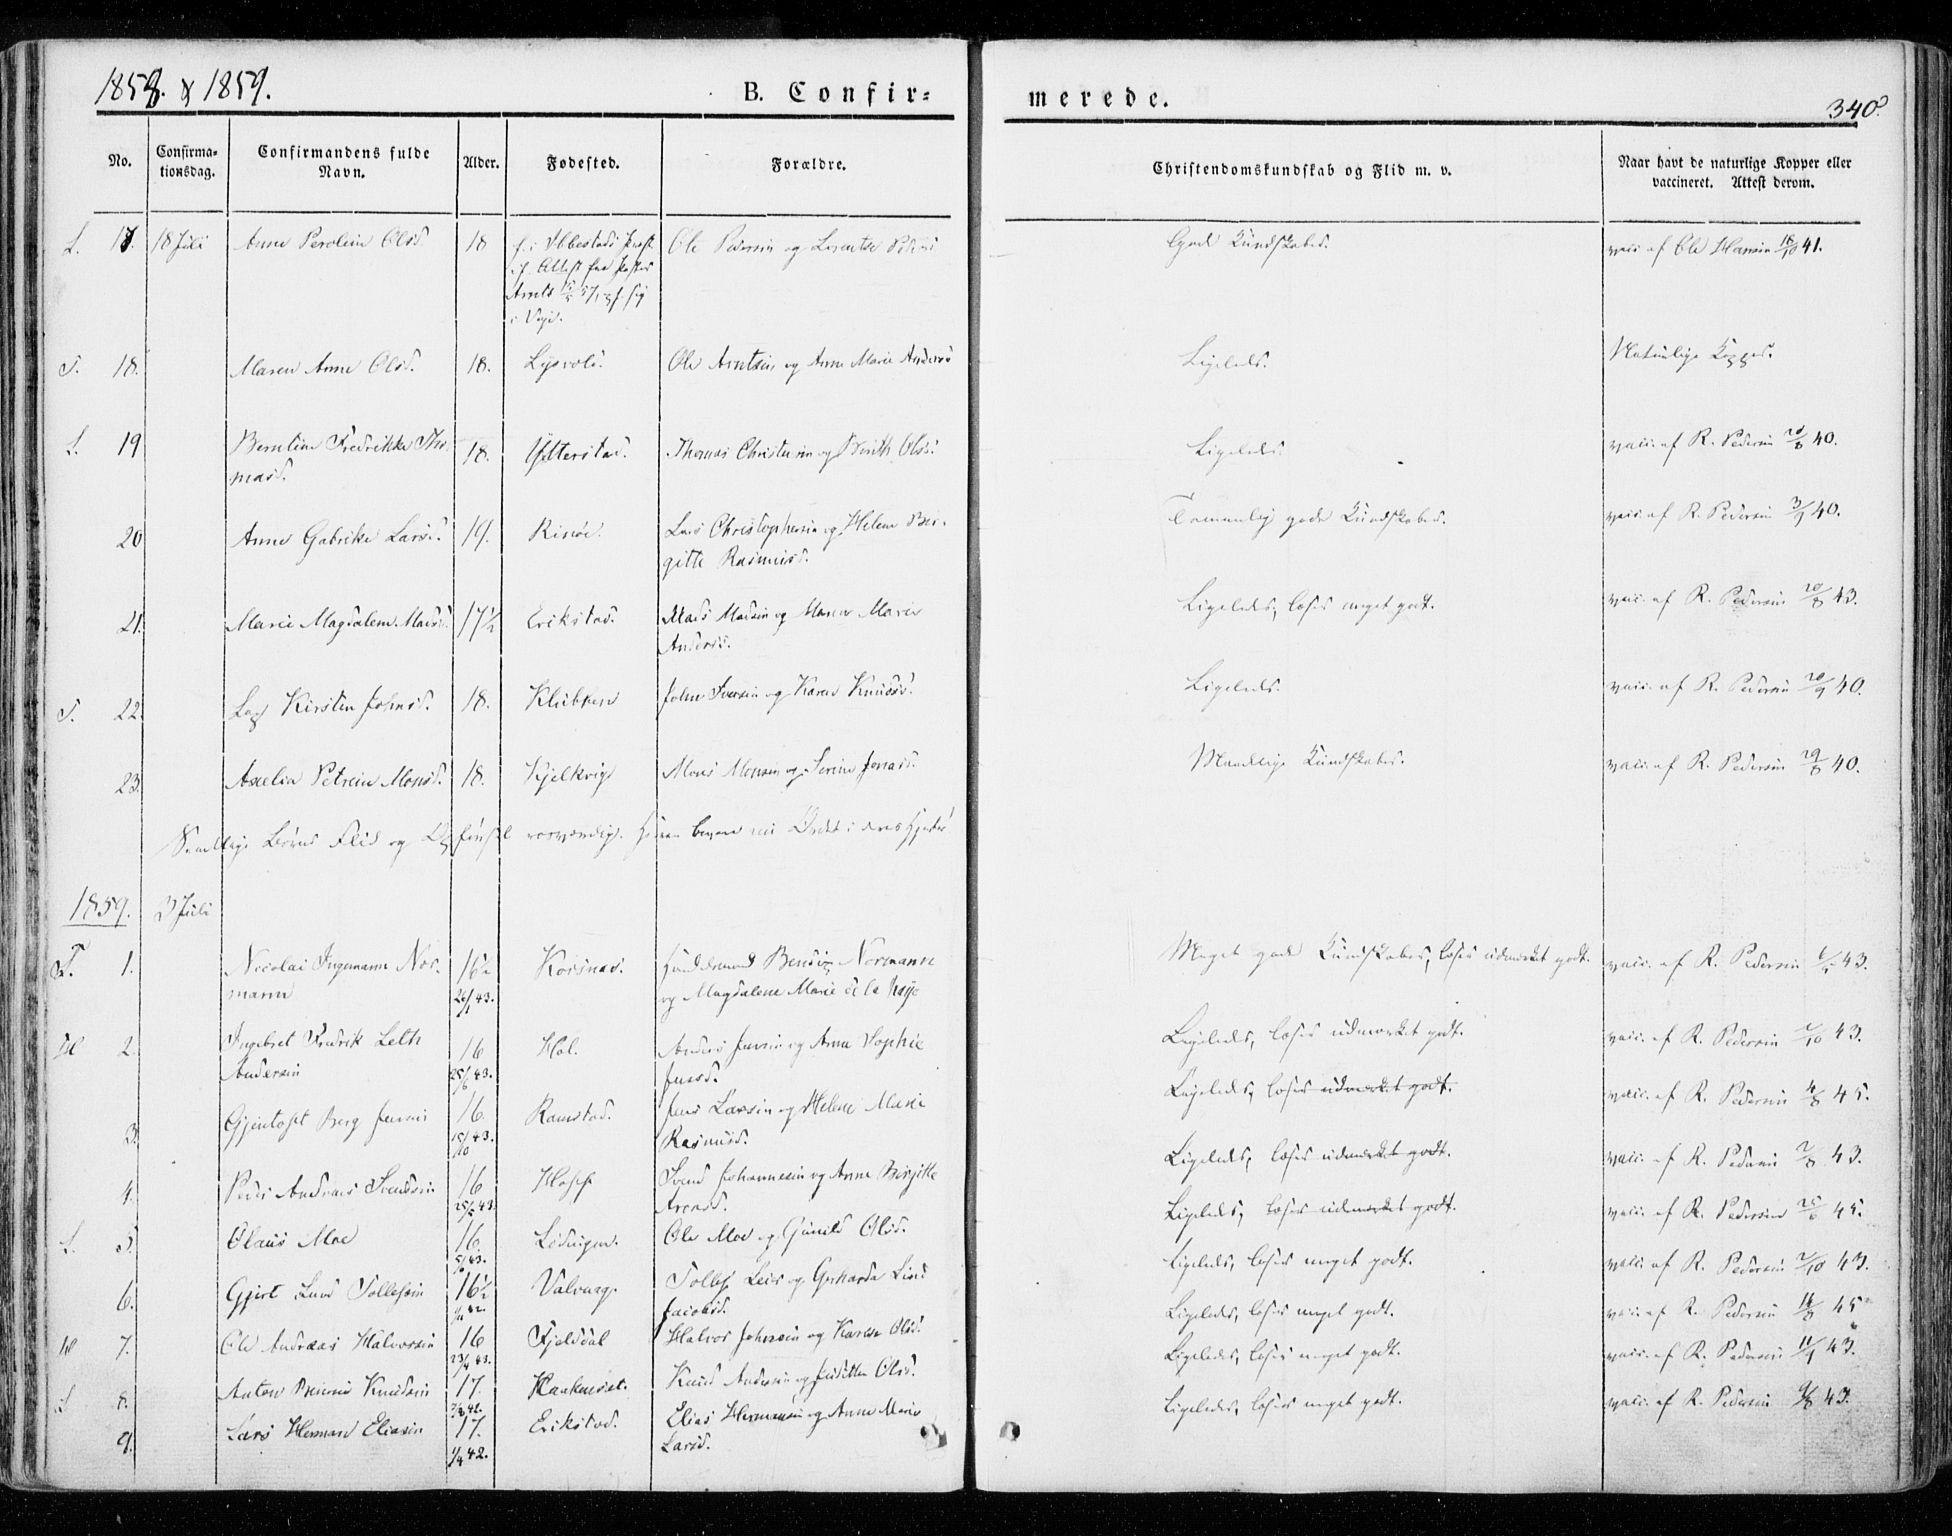 1858. & 1859.
B. Confir=
merede.
340
No.
Confirma-
tionsdag.
Confirmandens fulde
Navn.
Alder.
Fødested.
Forældre.
Christendomskundskab og Flid m. v.
Naar havt de naturlige Kopper eller
vaccineret. Attest derom.
L. 17. 18 Juli Anne Olsd. 18 Ole Pedersen og Gode Kundskaber. vacc. af Ole Hansen 41.
i Vigs.
T. 18. Maren Anne Olsd. 18. Ole Arntsen og Anne Marie Andersd. Ligeledes. Naturlige Kopper.
L. 19 Berntine Fredrikke Tho-
masd. 18. Ytterstad. Thomas og Berith Olsd. Ligeledes. vacc. af R. Pedersen 40.
20 Anne Gabrikke Larsd. 19. Rinøe. Lars Christophersen og Helene Bir-
gitte Rasmusd. Temmelig gode Kundskaber. vacc. af R. Pedersen 3/9 40.
21. Marie Magdalene Madsd. 17½ Erikstad. Mads Madsen og Maren Marie
Andersd. Ligeledes, læser meget godt. vacc. af R. Pedersen 43.
T. 22. Kirsten Johnsd. 18. Klubben John Iversen og Karen Knudsd. Ligeledes. vacc. af R. Pedersen 40.
23. Axelia Petrine Monsd. 18. Kjelkvig Mons Monsen og Serine Jonasd. Maadelige Kundskaber. vacc. af R. Pedersen 40.
Samtlige Børns Flid og rosværdig. Herren bevare Ordet i deres Hjerter
1859. 3 Juli
T. 1. Nicolai Ingemann Nor-
mann 16½
43. Korsnes. Normann
og Magdalene Marie de la Meget gode Kundskaber, læser udmærket godt. vacc. af R. Pedersen 43.
2. Ingebret Fredrik Leth
Andersen 16
25/6 43. Hol. Anders Jensen og Anne Sophie
Jensd. Ligeledes, læser udmærket godt. vacc. af R. Pedersen 43.
3. Berg Jensen 16.
15/10 43. Ramstad. Jens Larsen og Helene Marie
Rasmusd. Ligeledes, læser udmærket godt. vacc. af R. Pedersen 4/8 45.
4. Peder Andreas Svendsen 16
43. Svend Johannesen og Anne Birgitte
Aronsd. Ligeledes, læser udmærket godt. vacc. af R. Pedersen 43.
L. 5. Olaus Moe 16
43. Lødingen. Ole Moe og Gunild Olsd. Ligeledes, læser udmærket godt. vacc. af R. Pedersen 45.
6. Gjert Lund Tollefsen 16½
42. Valvaag. Tollef Leis og Gerharda Lind
Jacobsd. Ligeledes, læser meget godt. vacc. af R. Pedersen 43.
7. Ole Andreas Halvorsen 16
43. Fjeldal Halvor Johnsen og Karen Olsd. Ligeledes, læser meget godt. vacc. af R. Pedersen 45
L 8. Anton Knudsen 17.
42. Knud Andersen og Olsd. Ligeledes, læser meget godt. vacc. af R. Pedersen 43.
9. Lars Herman Eliasen 17.
1/4 42. Erikstad. Elias Hermansen og Anne Marie
Larsd. Ligeledes, læser meget godt. vacc. af R. Pedersen 43.